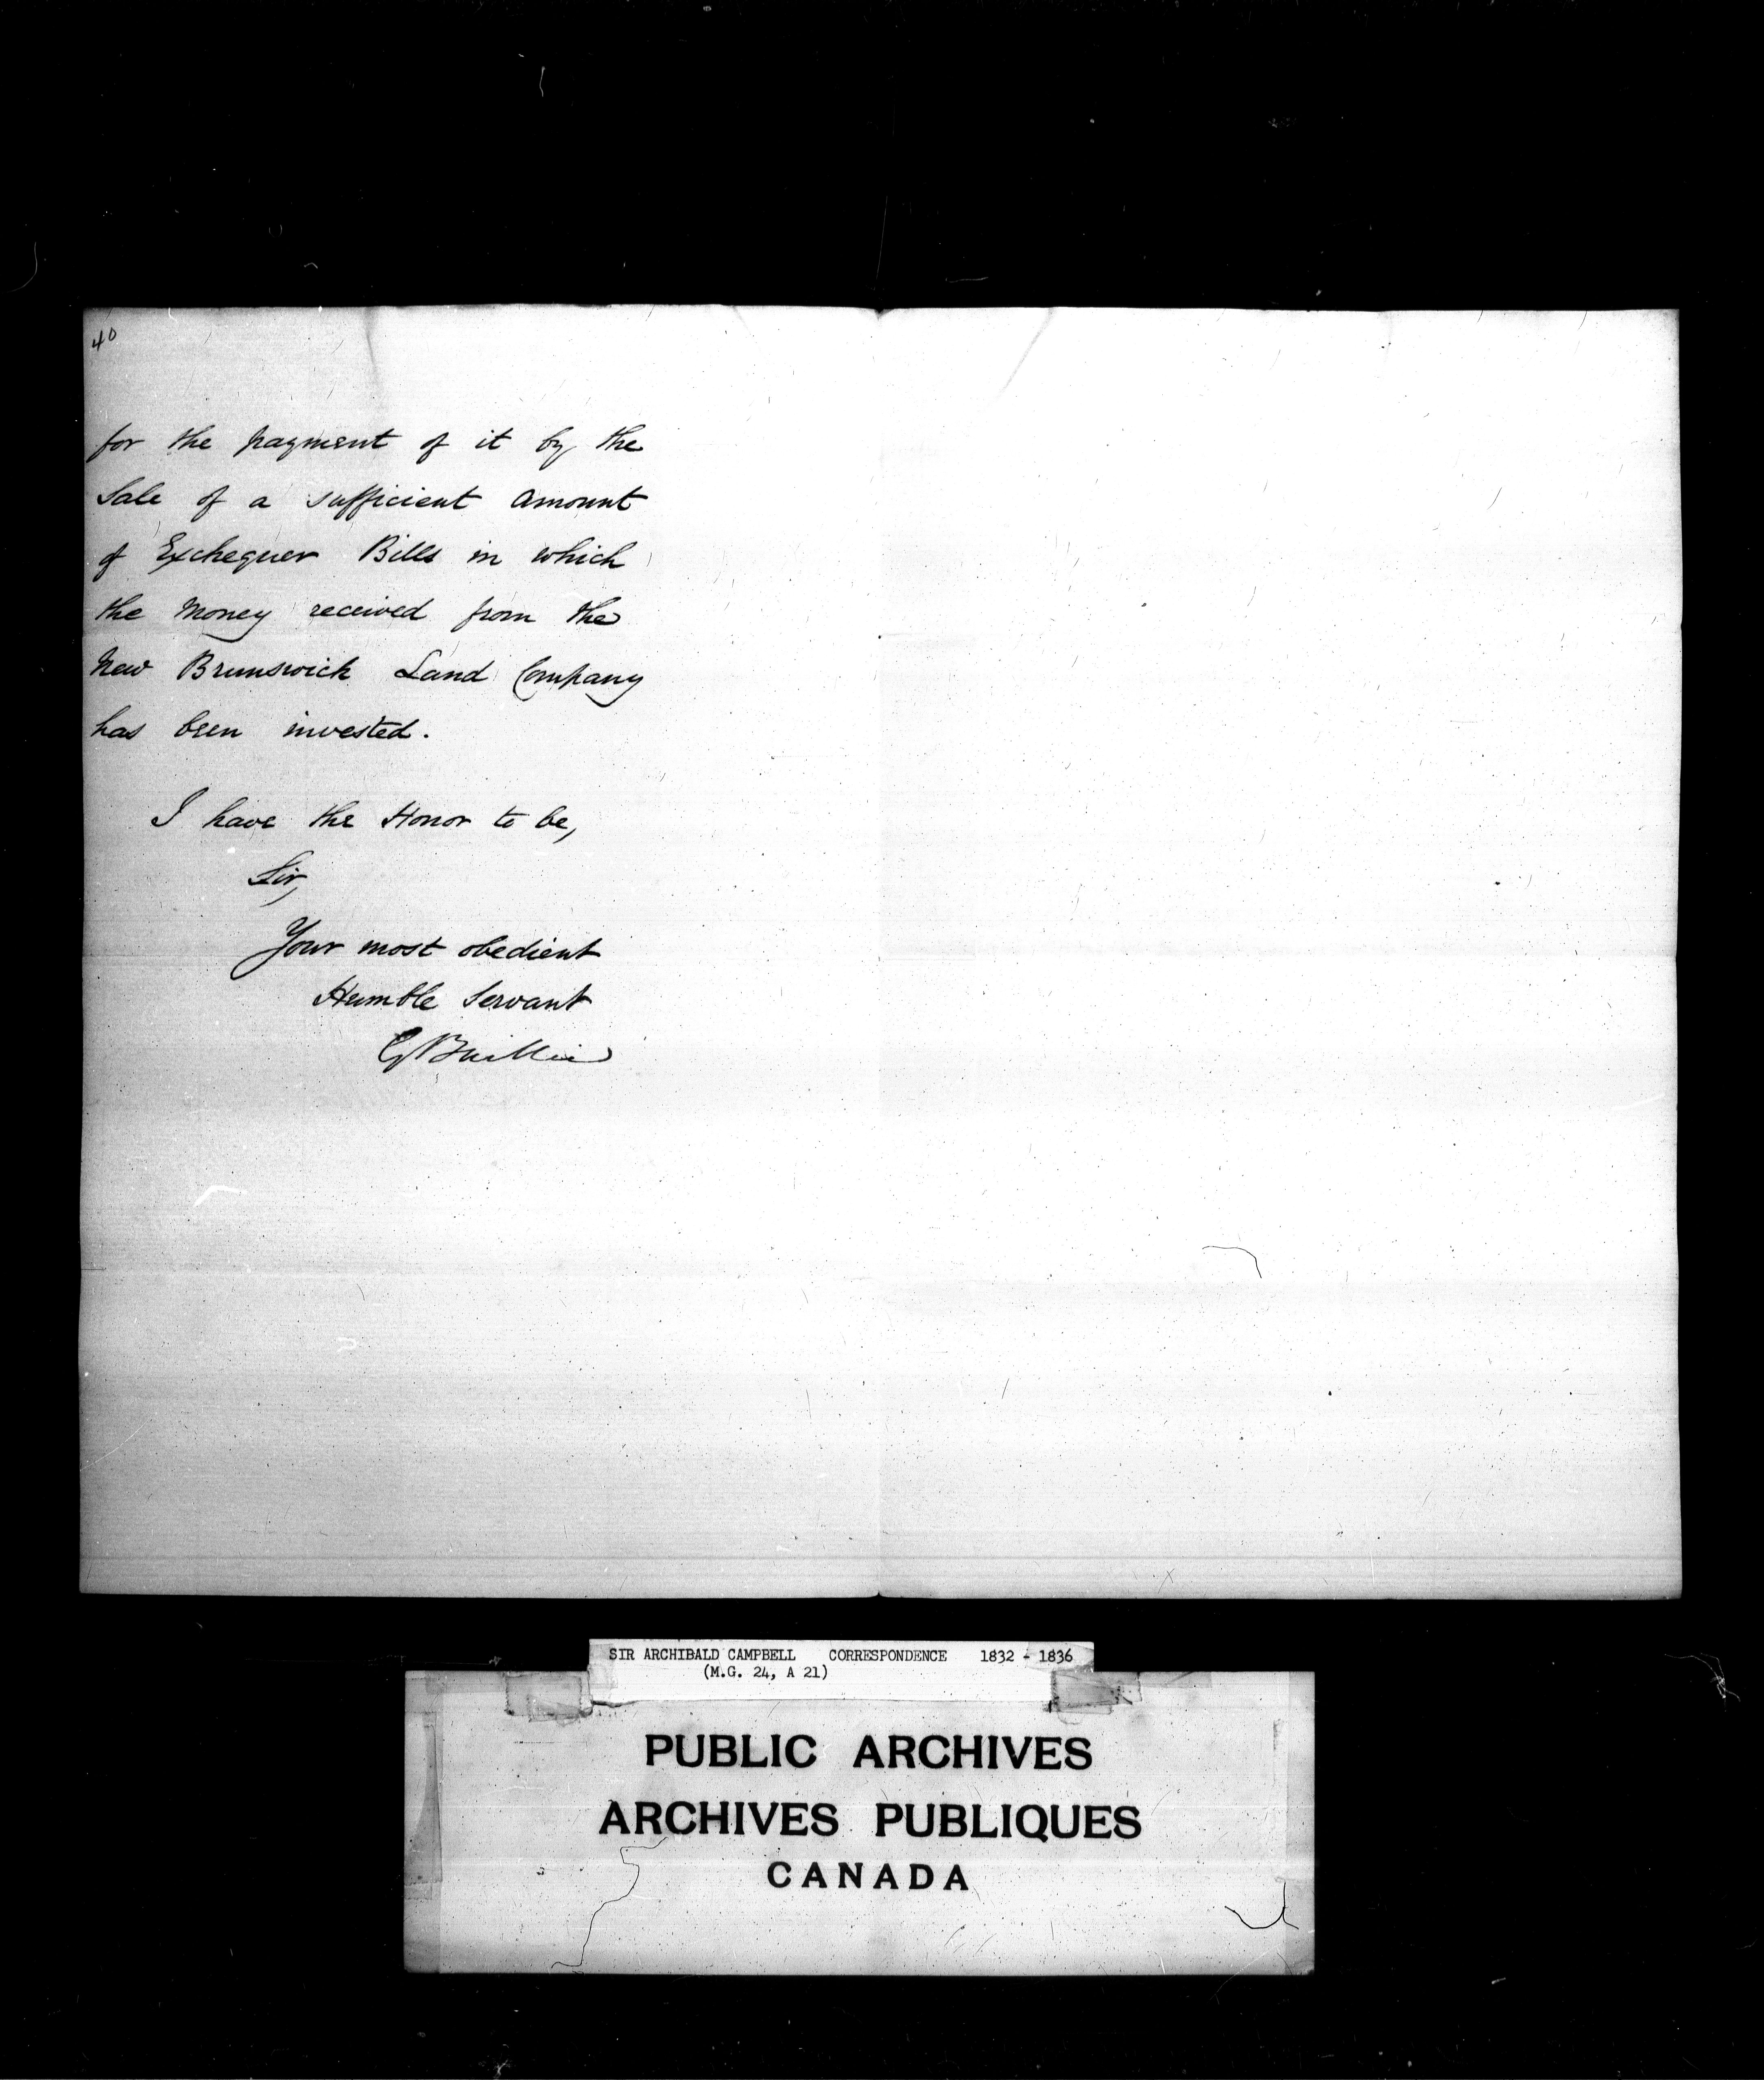 40
for the payment of it by the
Sale of a sufficient amount
of Exchequer Bills in which
the Money received from the
New Brunswick Land Company
has been invested.
I have the Honor to be,
Sir,
Your most obedient
Humble Servant
G Baillie
SIR ARCHIBALD CAMPBELL CORRESPONDENCE 1832 - 1836
(M.G. 24, A 21)
PUBLIC ARCHIVES
ARCHIVES PUBLIQUES
CANADA